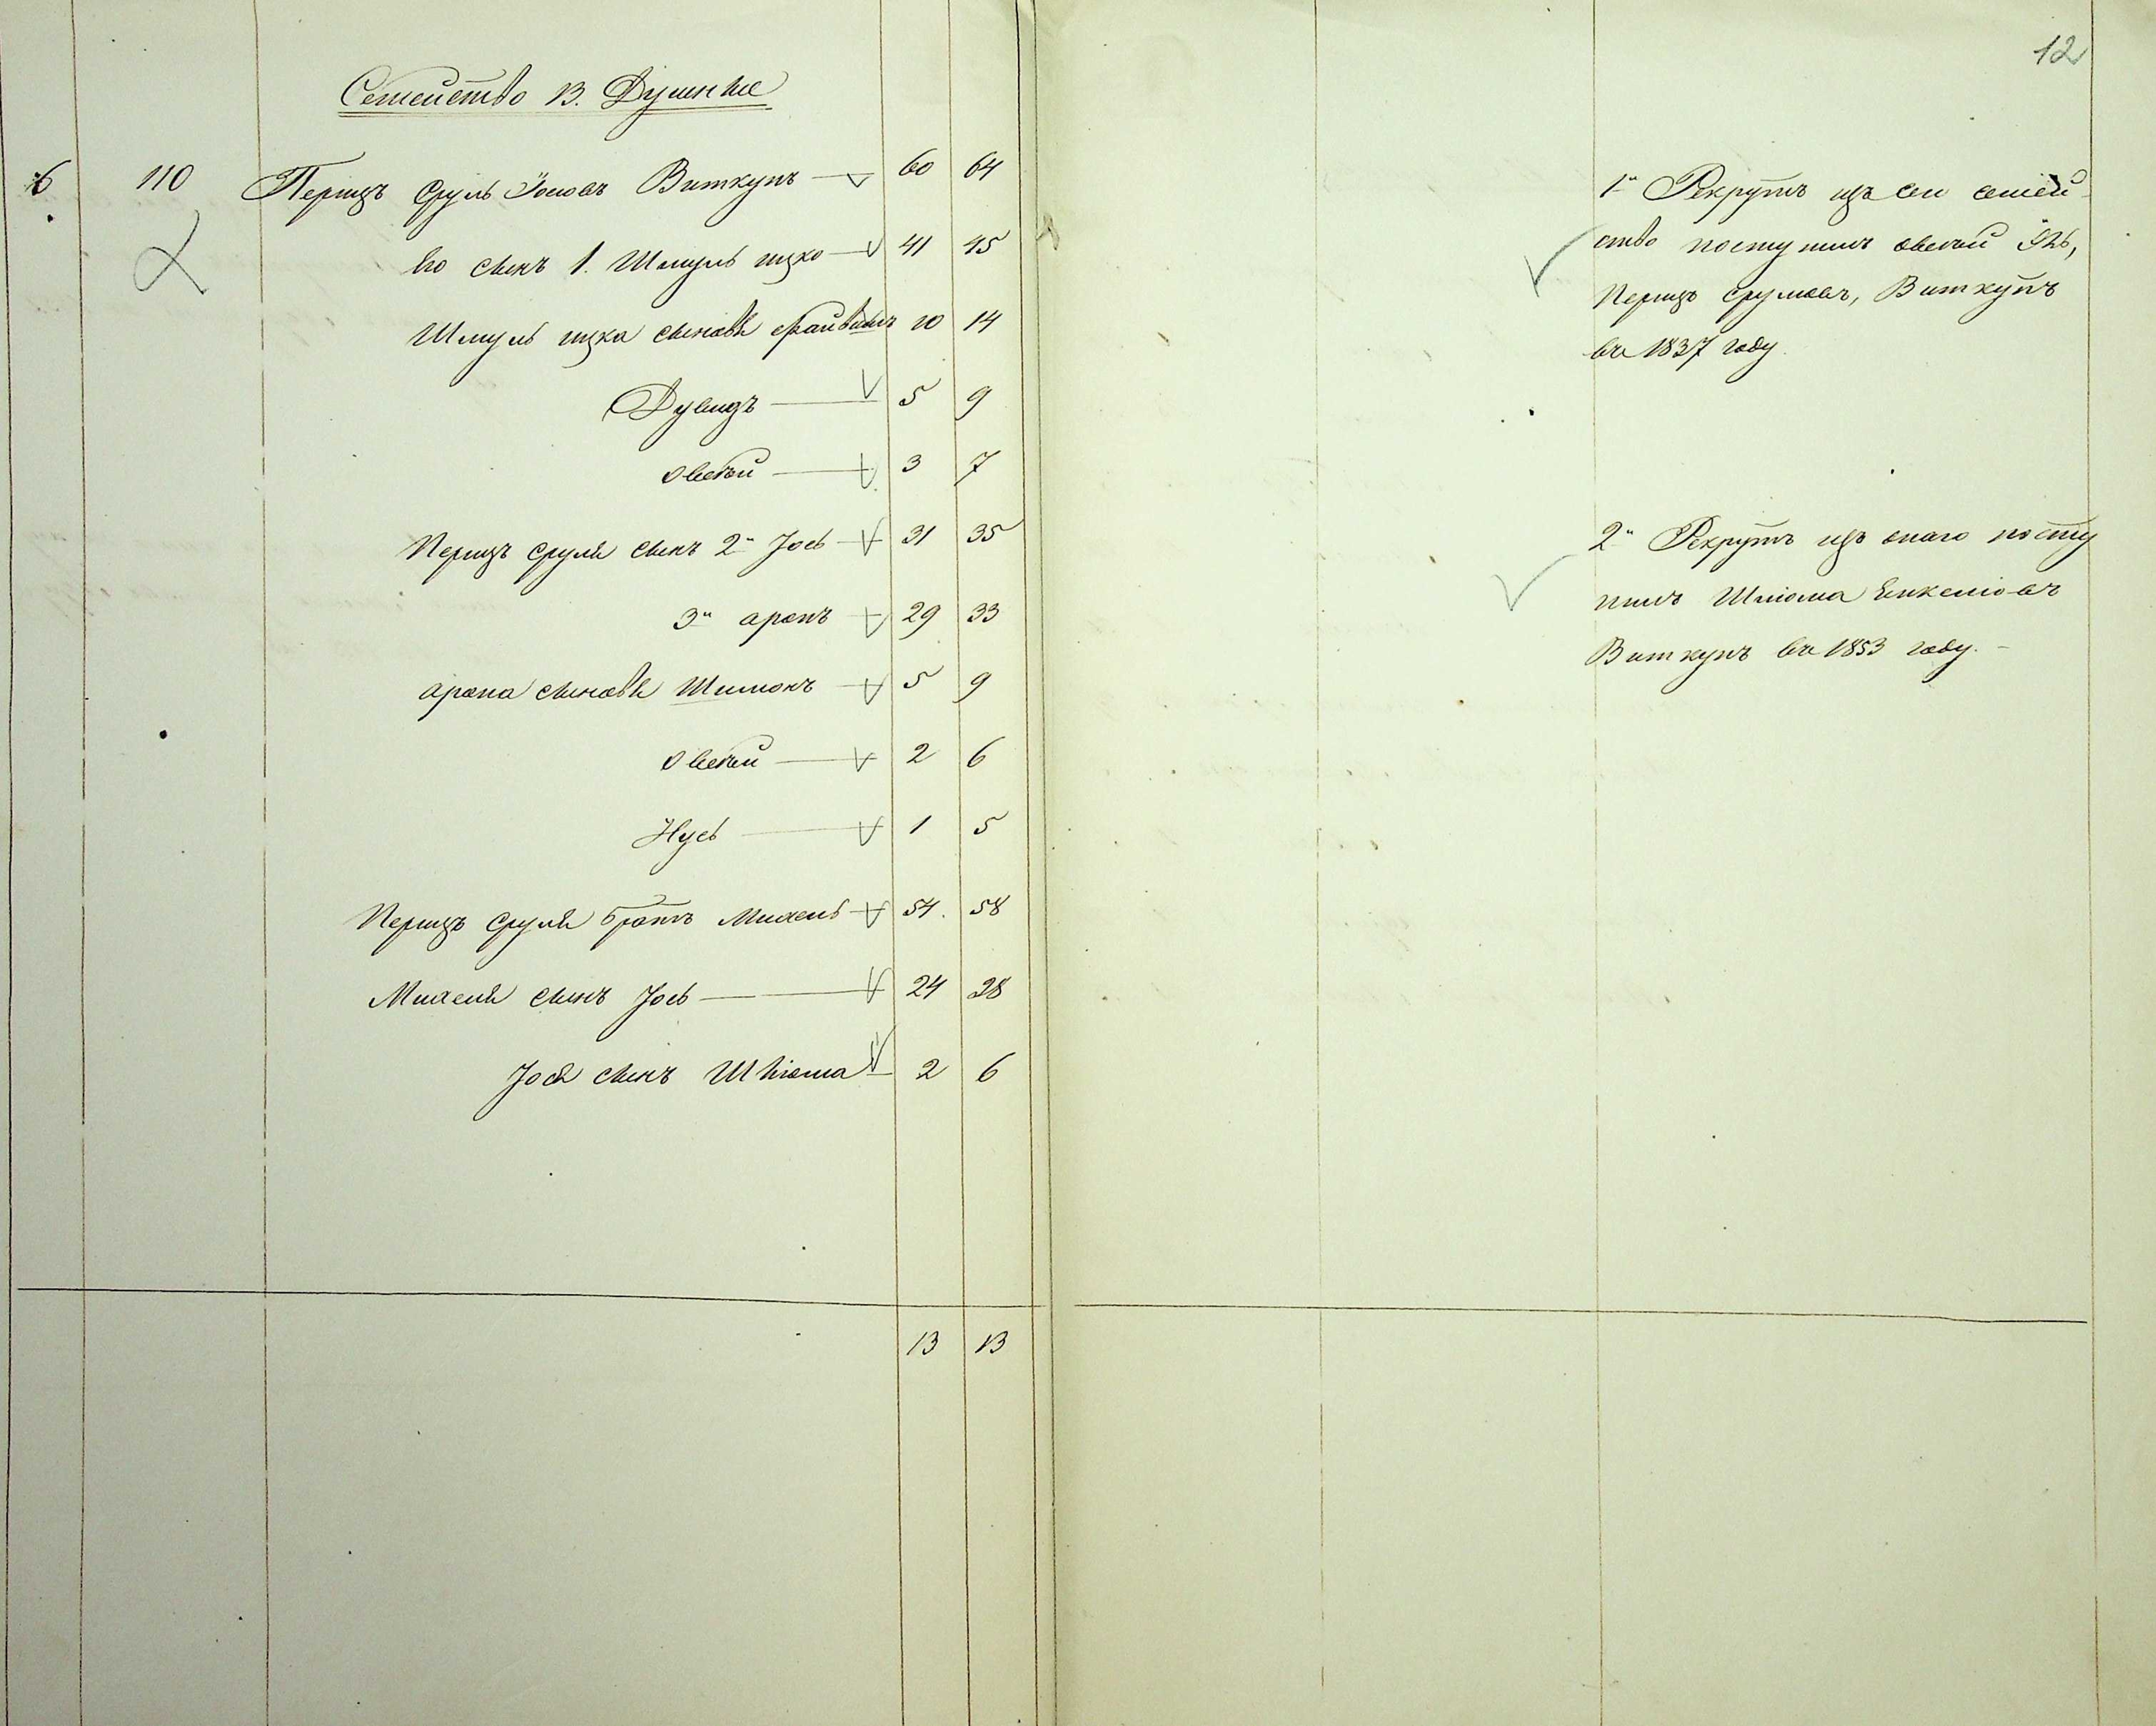 12
Семейство 13. Душные
6 110 Перецъ Сруль Іосіовъ Виткупъ — 60 64
Его сынъ 1. Шмуль ицко — 41 45
Шмуль ицка сыновья Файвишъ 10 14
Дувидъ — 5 9
Овсѣй — 3 7
Перецъ Сруля сынъ 2й Іось — 31 35
3й аронъ — 29 33
арона сыновья Шимонъ — 5 9
Овсѣй — 2 6
Нусь — 1 5
Перецъ Сруля братъ Михель — 54. 58
Михеля сынъ Іось — 24 28
Іося сынъ Шлюма — 2 6
13 13
1й Рекрутъ изъ сей семей
ство поступилъ овсѣй
Перецъ Срулювъ, Виткупъ
въ 1837 году
2й Рекрутъ изъ онаго посту
пилъ Шлюма Енкеліовъ
Виткупъ въ 1853 году. —